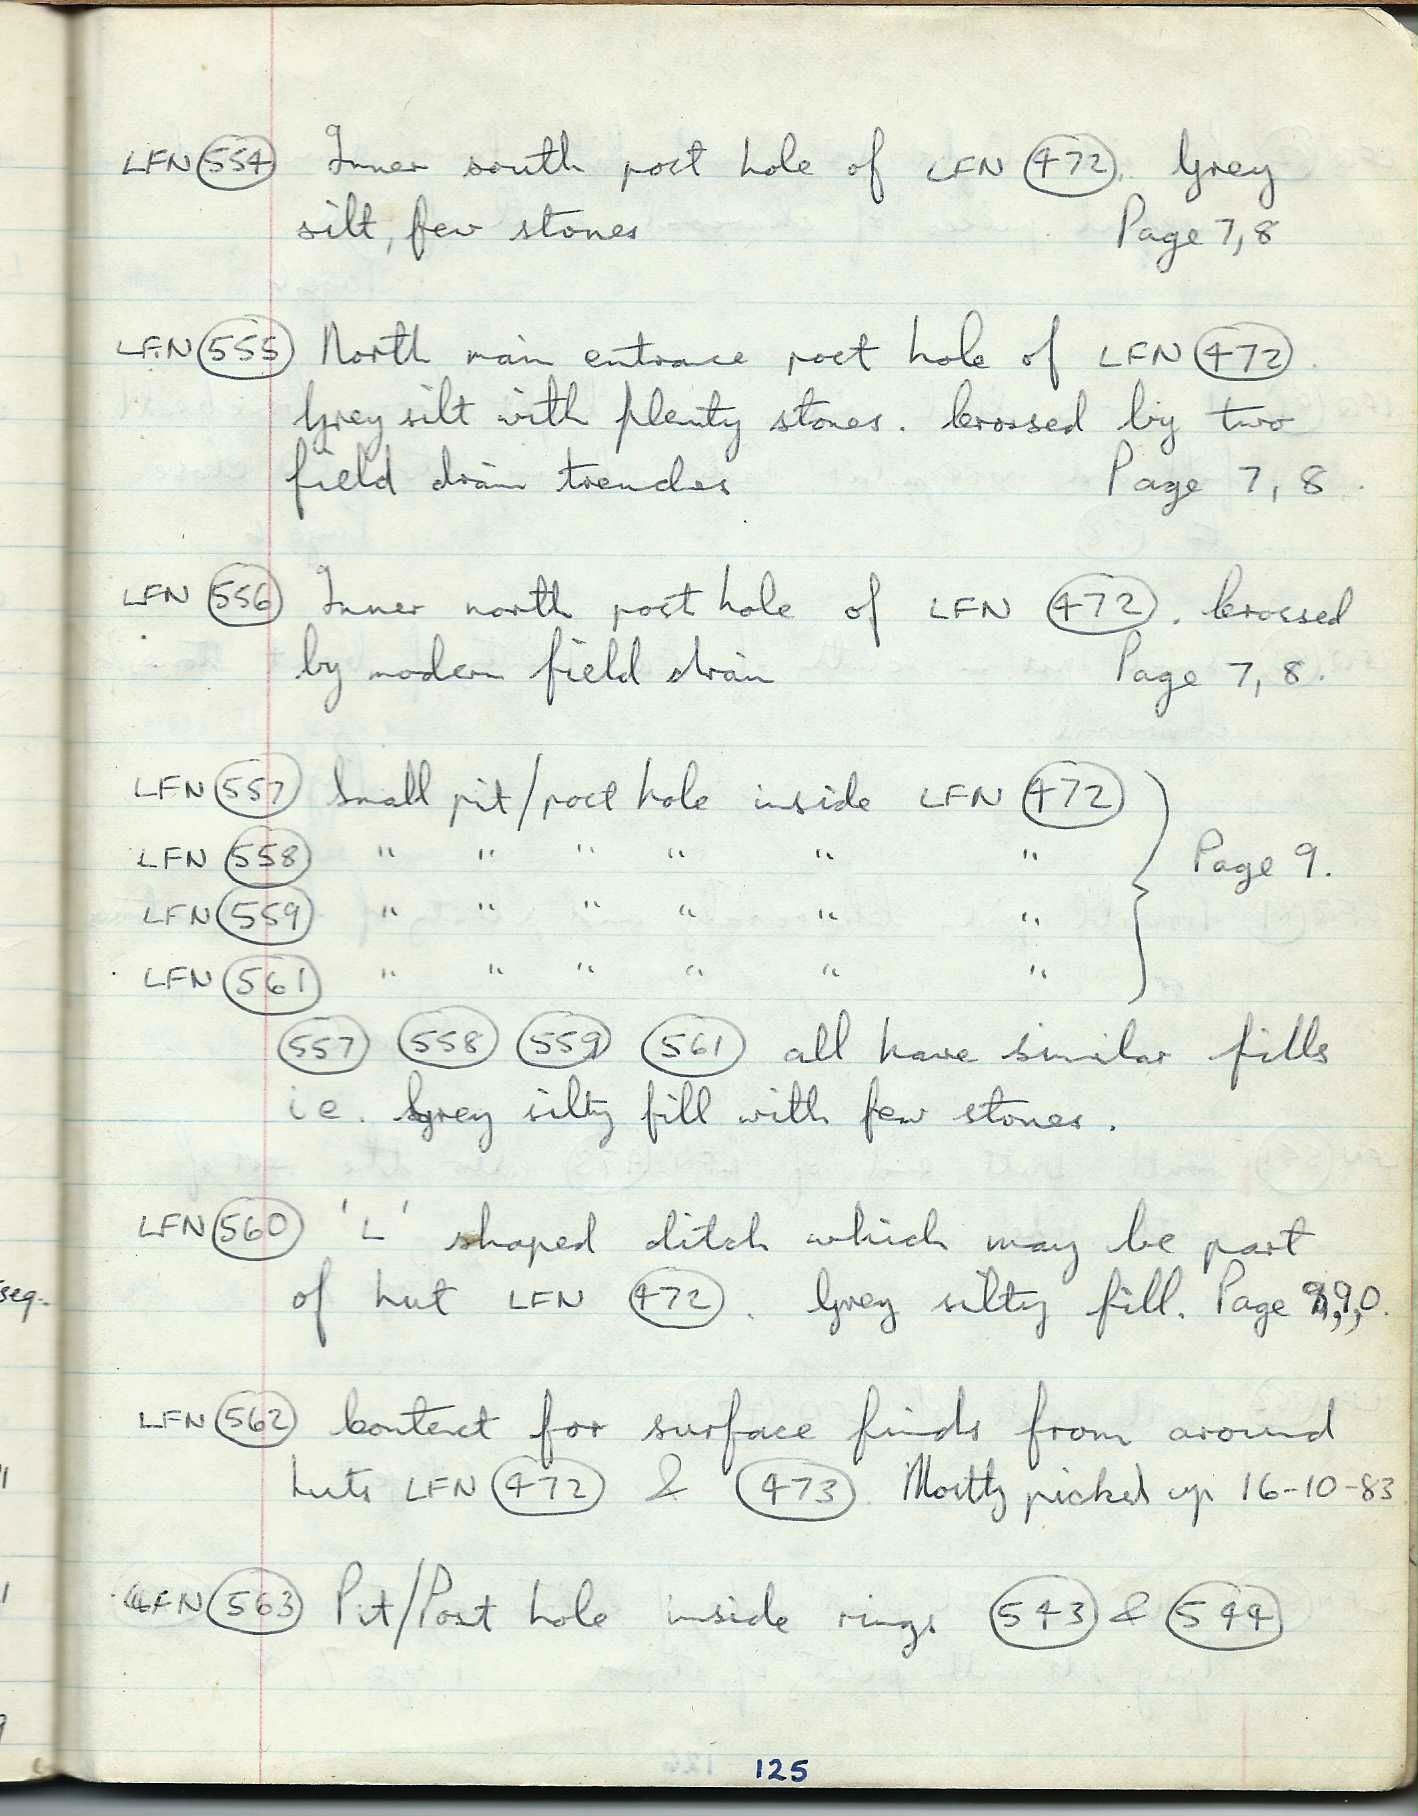 LFN 554 Inner south post hole of LFN 472. Grey
silt, few stones Page 7,8
LFN 555 North main entrance post hole of LFN 472.
Grey silt with plenty stones. Crossed by two
field drain trenches Page 7, 8.
LFN 556 Inner north post hole of LFN 472. Crossed
by modern field drain Page 7, 8.
LFN 557 Small pit/post hole inside LFN 472
LFN 558 " " " " " "
Page 9.
LFN 559 " " " " " "
LFN 561 " " " " " "
557 558 559 561 all have similar fills
i.e. Grey silty fill with few stones.
LFN 560 'L' shaped ditch which may be part
of hut LFN 472. Grey silty fill. Page
seq.
LFN 562 Context for surface finds from around
huts LFN 472 & 473. Mostly picked up 16-10-83
LFN 563 Pit/Post hole inside rings 543 & 544
125